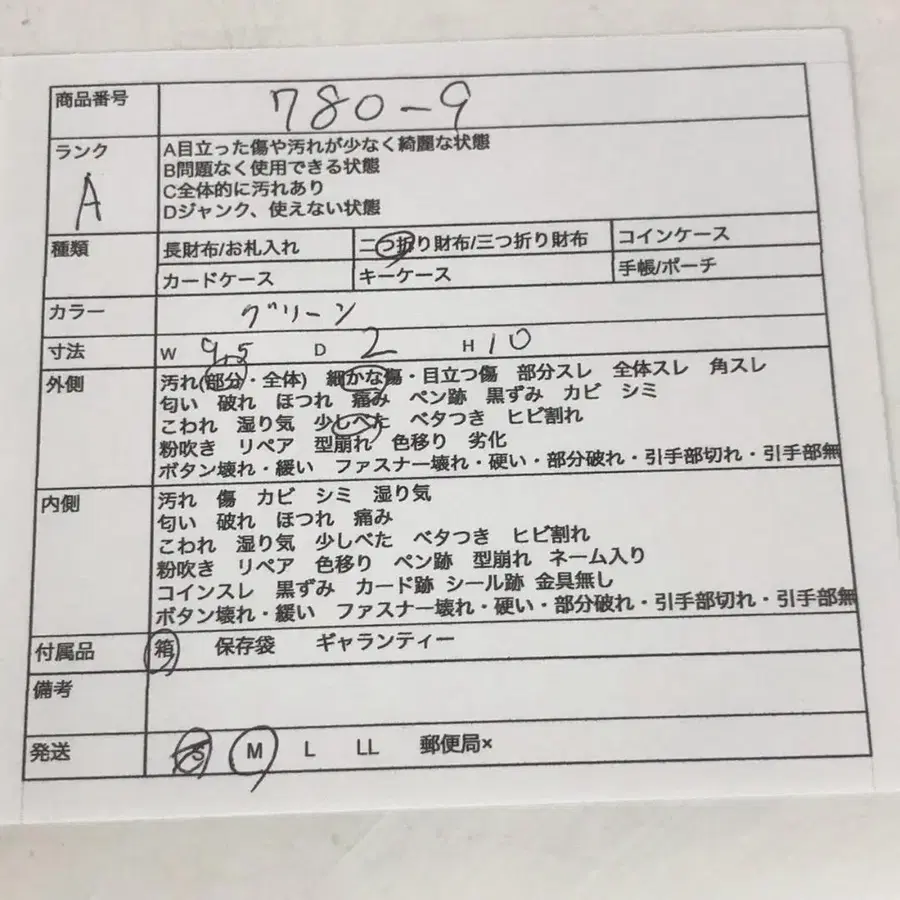 商品番号 780-9
ランク A目立った傷や汚れが少なく綺麗な状態
A B問題なく使用できる状態
C全体的に汚れあり
Dジャンク、使えない状態
種類 長財布/お札入れ 二つ折り財布/三つ折り財布 コインケース
カードケース キーケース 手帳/ポーチ
カラー グリーン
寸法 W 9.5 D 2 H 10
外側 汚れ(部分・全体) 細かな傷・目立つ傷 部分スレ 全体スレ 角スレ
匂い 破れ ほつれ 痛み ペン跡 黒ずみ カビ シミ
こわれ 湿り気 少しべた ベタつき ヒビ割れ
粉吹き リペア 型崩れ 色移り 劣化
ボタン壊れ・緩い ファスナー壊れ・硬い・部分破れ・引手部切れ・引手部無
内側 汚れ 傷 カビ シミ 湿り気
匂い 破れ ほつれ 痛み
こわれ 湿り気 少しべた ベタつき ヒビ割れ
粉吹き リペア 色移り ペン跡 型崩れ ネーム入り
コインスレ 黒ずみ カード跡 シール跡 金具無し
ボタン壊れ・緩い ファスナー壊れ・硬い・部分破れ・引手部切れ・引手部無
付属品 箱 保存袋 ギャランティー
備考
発送 S M L LL 郵便局×